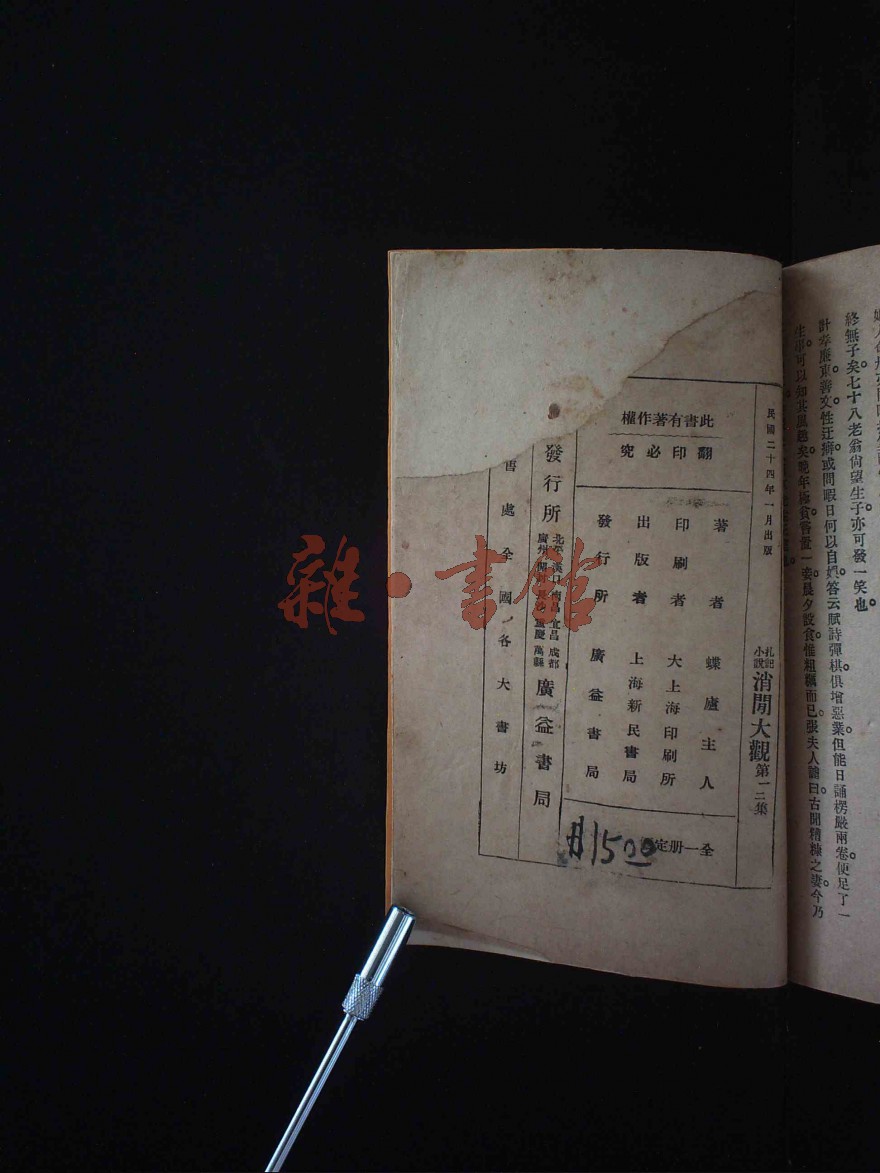 終無子矣。七十八老翁尙望生子亦可發一笑也。
計孝廉東善文性迂癖或問暇日何以自娛答云賦詩彈棋俱增惡業。但能日誦楞嚴兩卷便足了一
生。卽可以知其風趣矣。晚年極貧
妾晨夕設食惟粗糲而已。張夫人謔曰古聞糟糠之妻今乃
民國二十四年一月出版
札記小說 消閒大觀 第一二集
此書有著作權
翻印必究
著者 蝶廬主人
印刷者 大上海印刷所
出版者 上海新民書局
發行所 廣益書局
全一册定
1500
發行所 北平 漢口 南昌 宜昌 成都 廣州 開封 長沙 重慶 萬縣 廣益書局
售處全國各大書坊
雜·書館